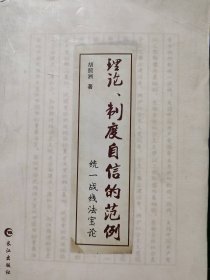 理论、制度自信的范例
统一战线法宝论
著
长江出版社